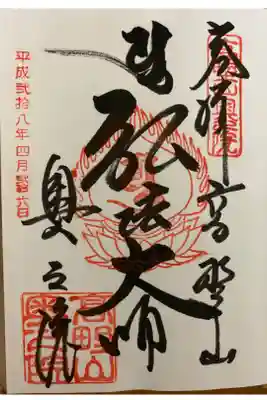 奉拝 高野山
弘法大師
奥之院
平成弐拾八年四月
高野山